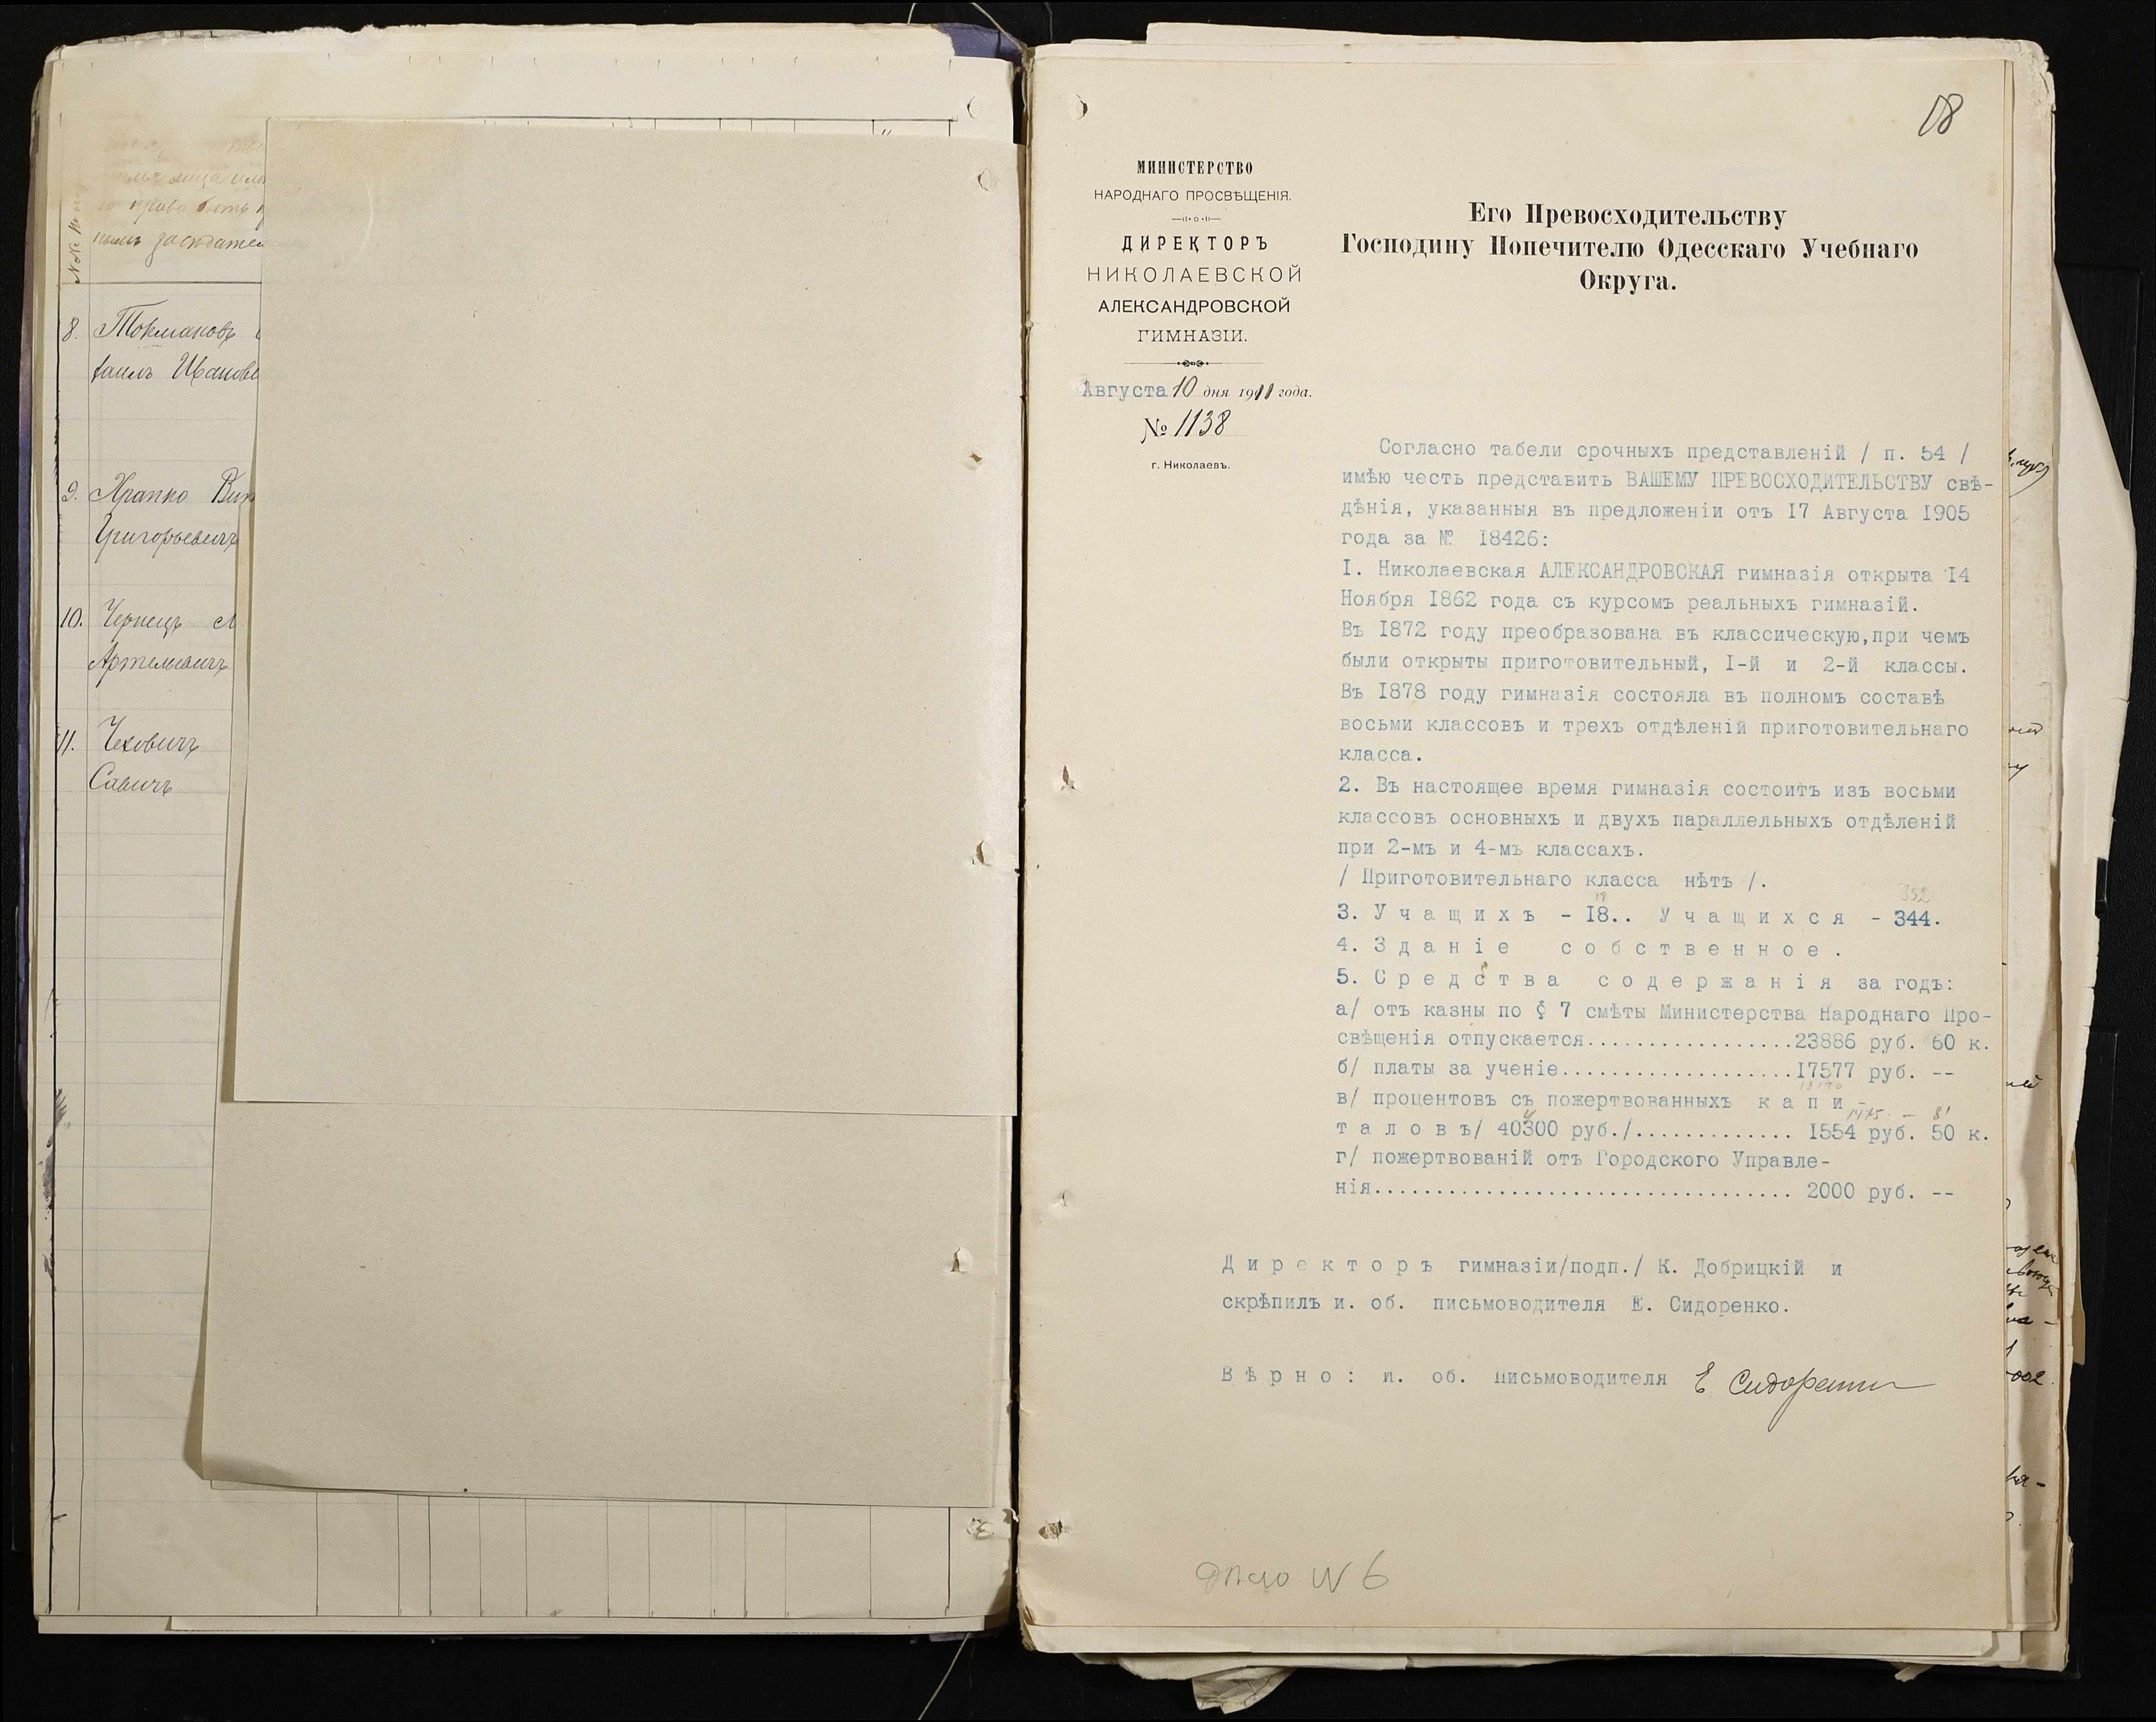 8. Токмаковъ
Ивановъ
9. Храпко
Григорьевичъ
10. Чернецъ
Артемьевичъ
11. Чеховичъ
Савичъ
18
МИНИСТЕРСТВО
НАРОДНАГО ПРОСВѢЩЕНІЯ.
ДИРЕКТОРЪ
НИКОЛАЕВСКОЙ
АЛЕКСАНДРОВСКОЙ
ГИМНАЗІИ.
Августа 10 дня 1911 года.
№ 1138
г. Николаевъ.
Его Превосходительству
Господину Попечителю Одесскаго Учебнаго
Округа.
Согласно табели срочныхъ представленій / п. 54 /
имѣю честь представить ВАШЕМУ ПРЕВОСХОДИТЕЛЬСТВУ свѣ-
дѣнія, указанныя въ предложеніи отъ I7 Августа I905
года за № I8426:
I. Николаевская АЛЕКСАНДРОВСКАЯ гимназія открыта I4
Ноября I862 года съ курсомъ реальныхъ гимназій.
Въ I872 году преобразована въ классическую,при чемъ
были открыты приготовительный, I-й и 2-й классы.
Въ I878 году гимназія состояла въ полномъ составѣ
восьми классовъ и трехъ отдѣленій приготовительнаго
класса.
2. Въ настоящее время гимназія состоитъ изъ восьми
классовъ основныхъ и двухъ параллельныхъ отдѣленій
при 2-мъ и 4-мъ классахъ.
/ Приготовительнаго класса нѣтъ /.
19 352
3. У ч а щ и х ъ - I8.. У ч а щ и х с я - 344.
4. З д а н і е с о б с т в е н н о е .
5. С р е д с т в а с о д е р ж а н і я за годъ:
а/ отъ казны по § 7 смѣты Министерства Народнаго Про-
свѣщенія отпускается.................23886 руб. 60 к.
б/ платы за ученіе...................I7577 руб. --
18170
в/ процентовъ съ пожертвованныхъ к а п и -
1475 - 81
т а л о в ъ/ 40300 руб./............. I554 руб. 50 к.
г/ пожертвованій отъ Городского Управле-
нія.................................. 2000 руб. --
Д и р е к т о р ъ гимназіи/подп./ К. Добрицкій и
скрѣпилъ и. об. письмоводителя Е. Сидоренко.
В ѣ р н о : и. об. Письмоводителя Е. Сидоренко
Дѣло N 6